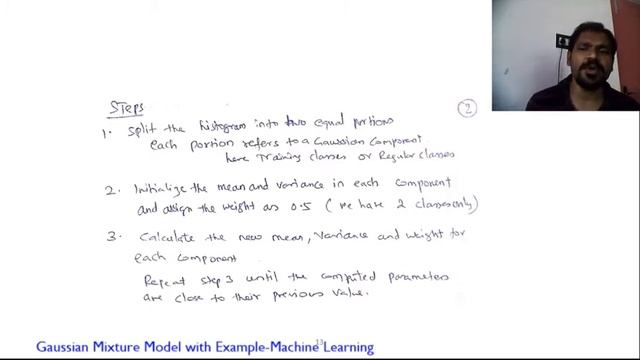 Steps
2
1. Split the histogram into two equal portions
each portion refers to a Gaussian component
here Training classes or Regular classes
2. Initialize the mean and variance in each component
and assign the weight as 0.5 (we have 2 classes only)
3. Calculate the new mean, variance and weight for
each component
Repeat step 3 until the computed parameters
are close to their previous value.
13
Gaussian Mixture Model with Example-Machine Learning